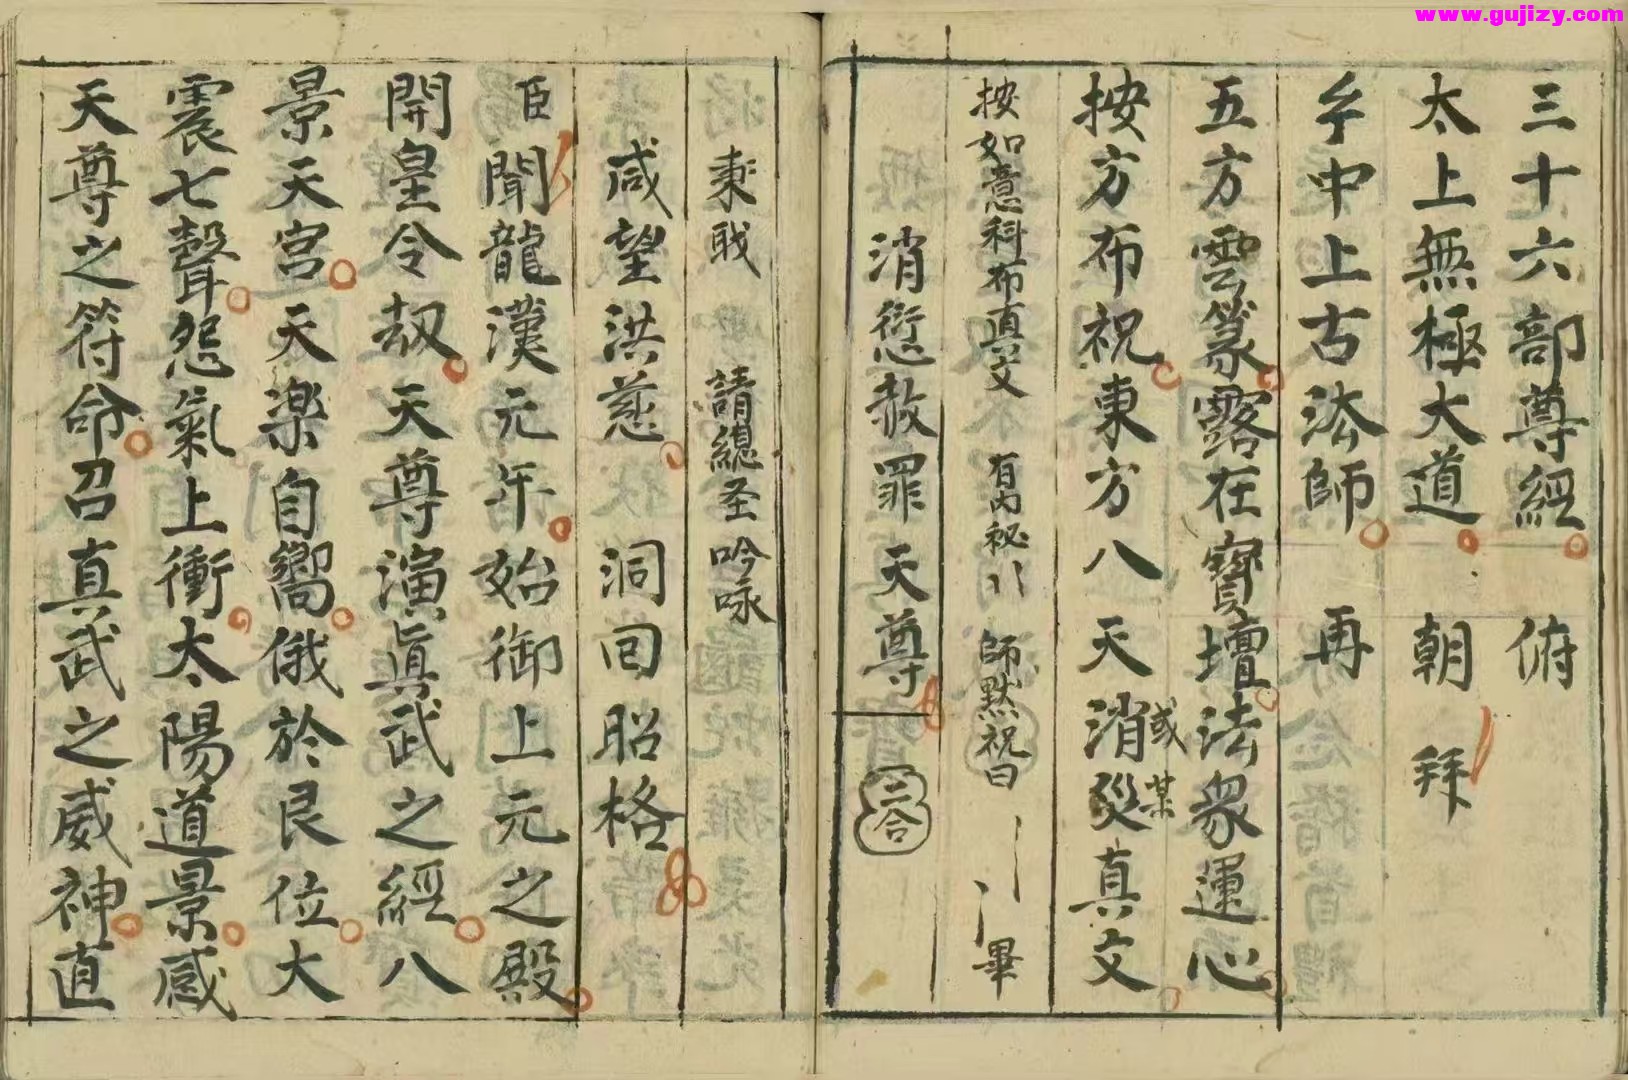 www.gujizy.com
三十六部尊經 俯
太上無極大道 朝 拜
𢆯中上古法師 再
五方雲篆露在寳壇法衆運心
按方布祝東方八 天消災真文
或 某
按如意科布真文 有内祕 師默祝曰 畢
消愆赦罪天尊 三合
秉戝 請總圣吟咏
咸望洪慈 洞回昭格
臣聞龍漢元年始御上元之殿
開皇令刼天尊演眞武之經八
景天宮天樂自嚮俄於艮位大
震七聲怨氣上衝太陽道景感
天尊之符命召真武之威神直